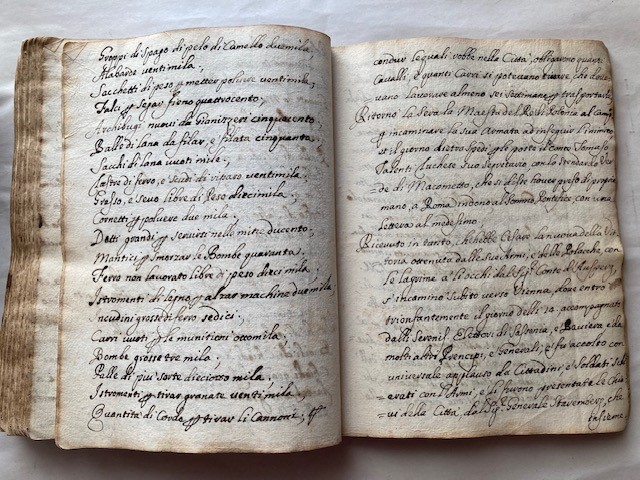 Groppi di spago di pelo di Camello duemila;
Alabarde ventimila;
Sacchetti di peso p metter polvere ventimila;
Falci p segar fieno quattrocento;
Archibugi nuovi da Gianizzeri cinquecento
Balle di lana da filar, e filata cinquanta;
Sacchi di lana vuoti mile;
Lastre di ferro, e scudi di riparo ventimila
Grasso, e sevo libre di Peso diecimila;
Cornetti p polvere due mila;
Detti grandi p servirsi nelle mine ducento;
Mantici p smorzar le Bombe quaranta;
Ferro non lavorato libre di peso dieci mila;
Istromenti di legno p alzar machine due mila
Incudini grosse di ferro sedici;
Carri vuoti p le munitioni ottomila;
Bombe grosse tre mila;
Palle di più sorte dieciotto mila;
Istromenti p tirar granate venti mila;
Quantità di Corde p tirar li Cannoni;
condur le quali robbe nella Città, obligarono quanti
Cavalli, e quanti Carri si potevano trovare, che dove
=vano lavorare almeno sei settimane p trasportarle
Ritornò la Sera la Maestà del Rè di Polonia al campo
p incaminare la sua Armata ad inseguir l'inimico
et il giorno dietro spedì p le poste il Conte Tomaso
Talenti Luchese suo Secretario con lo Stendardo Ver
=de di Maometto, che si disse haver preso di propria
mano, a Roma in dono al Sommo Pontefice con una
lettera al medesimo.
Ricevuto in tanto, che hebbe Cesare la nuova della Vit
toria ottenuta dalle sue Armi, e dalle Polacche, con
le lagrime a gl'occhi dal Sig. Conte di
s'incaminò subito verso Vienna, dove entrò
trionfantemente il giorno delli 14 accompagnato
dalli Sereniss. Elettori di Sassonia, e Baviera, e da
molti altri Prencipi, e Generali; e fu accolto con
universale applauso da Cittadini, e Soldati
=erati con l'Armi, e li furono presentate le Chia
=vi della Città, dal Sig. Generale Starembergh, che
insieme